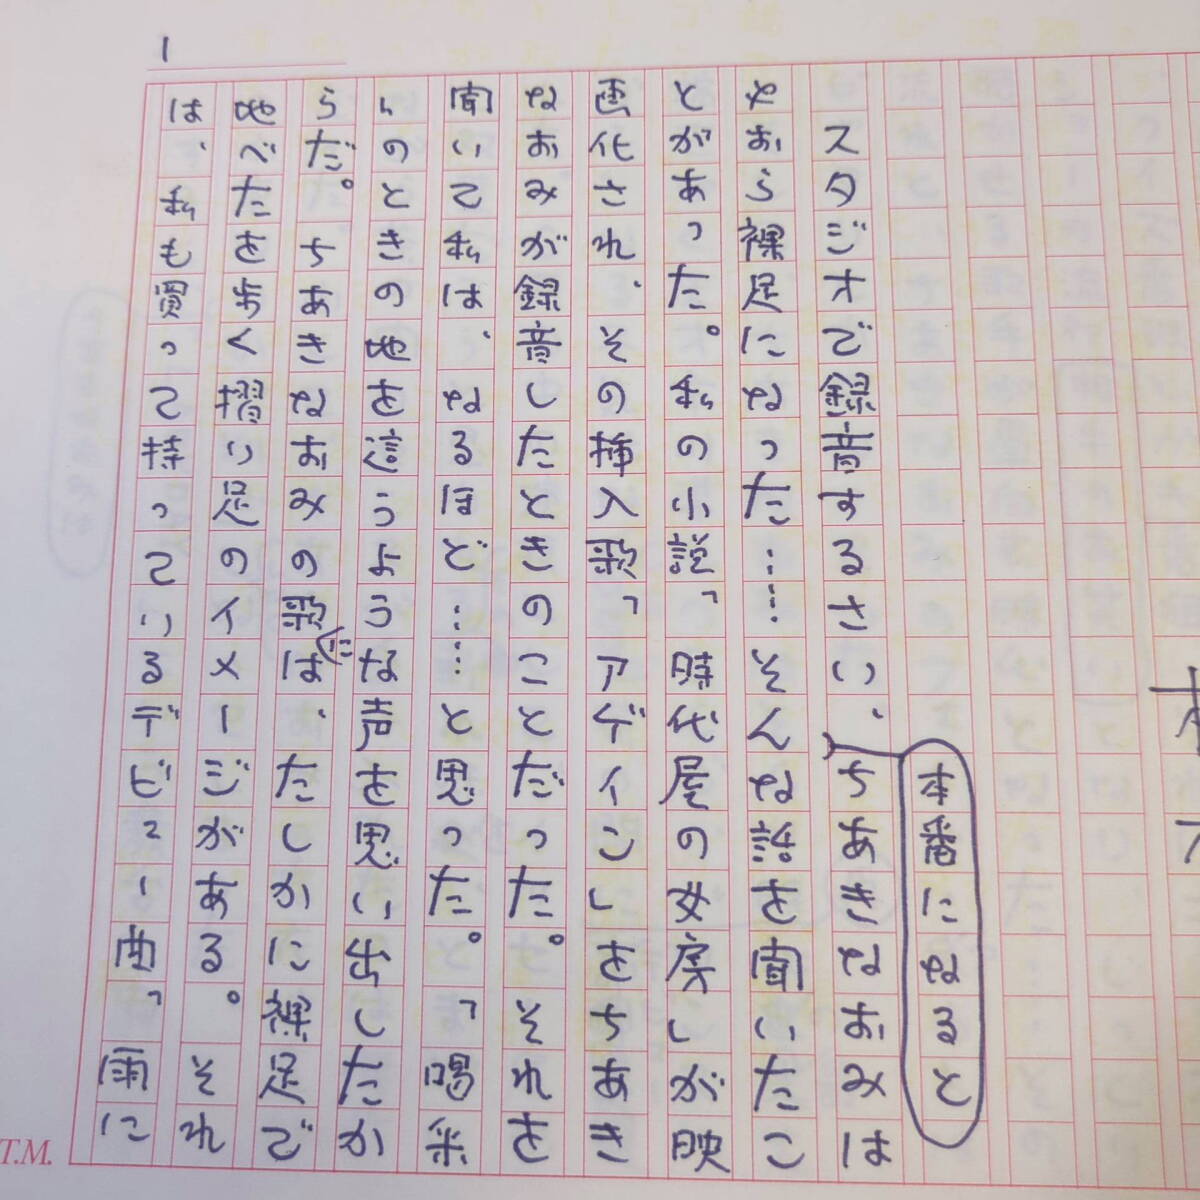 1
本番になると
スタジオで録音するさい、ちあきなおみは
やおら裸足になった……そんな話を聞いたこ
とがあった。私の小説「時代屋の女房」が映
画化され、その挿入歌「アゲイン」をちあき
なおみが録音したときのことだった。それを
聞いて私は、なるほど……と思った。「喝采
」のときの地を這うような声を思い出したか
らだ。ちあきなおみの歌(に)は、たしかに裸足で
地べたを歩く摺り足のイメージがある。それ
は、私も買って持っているデビュー曲「雨に
T.M.